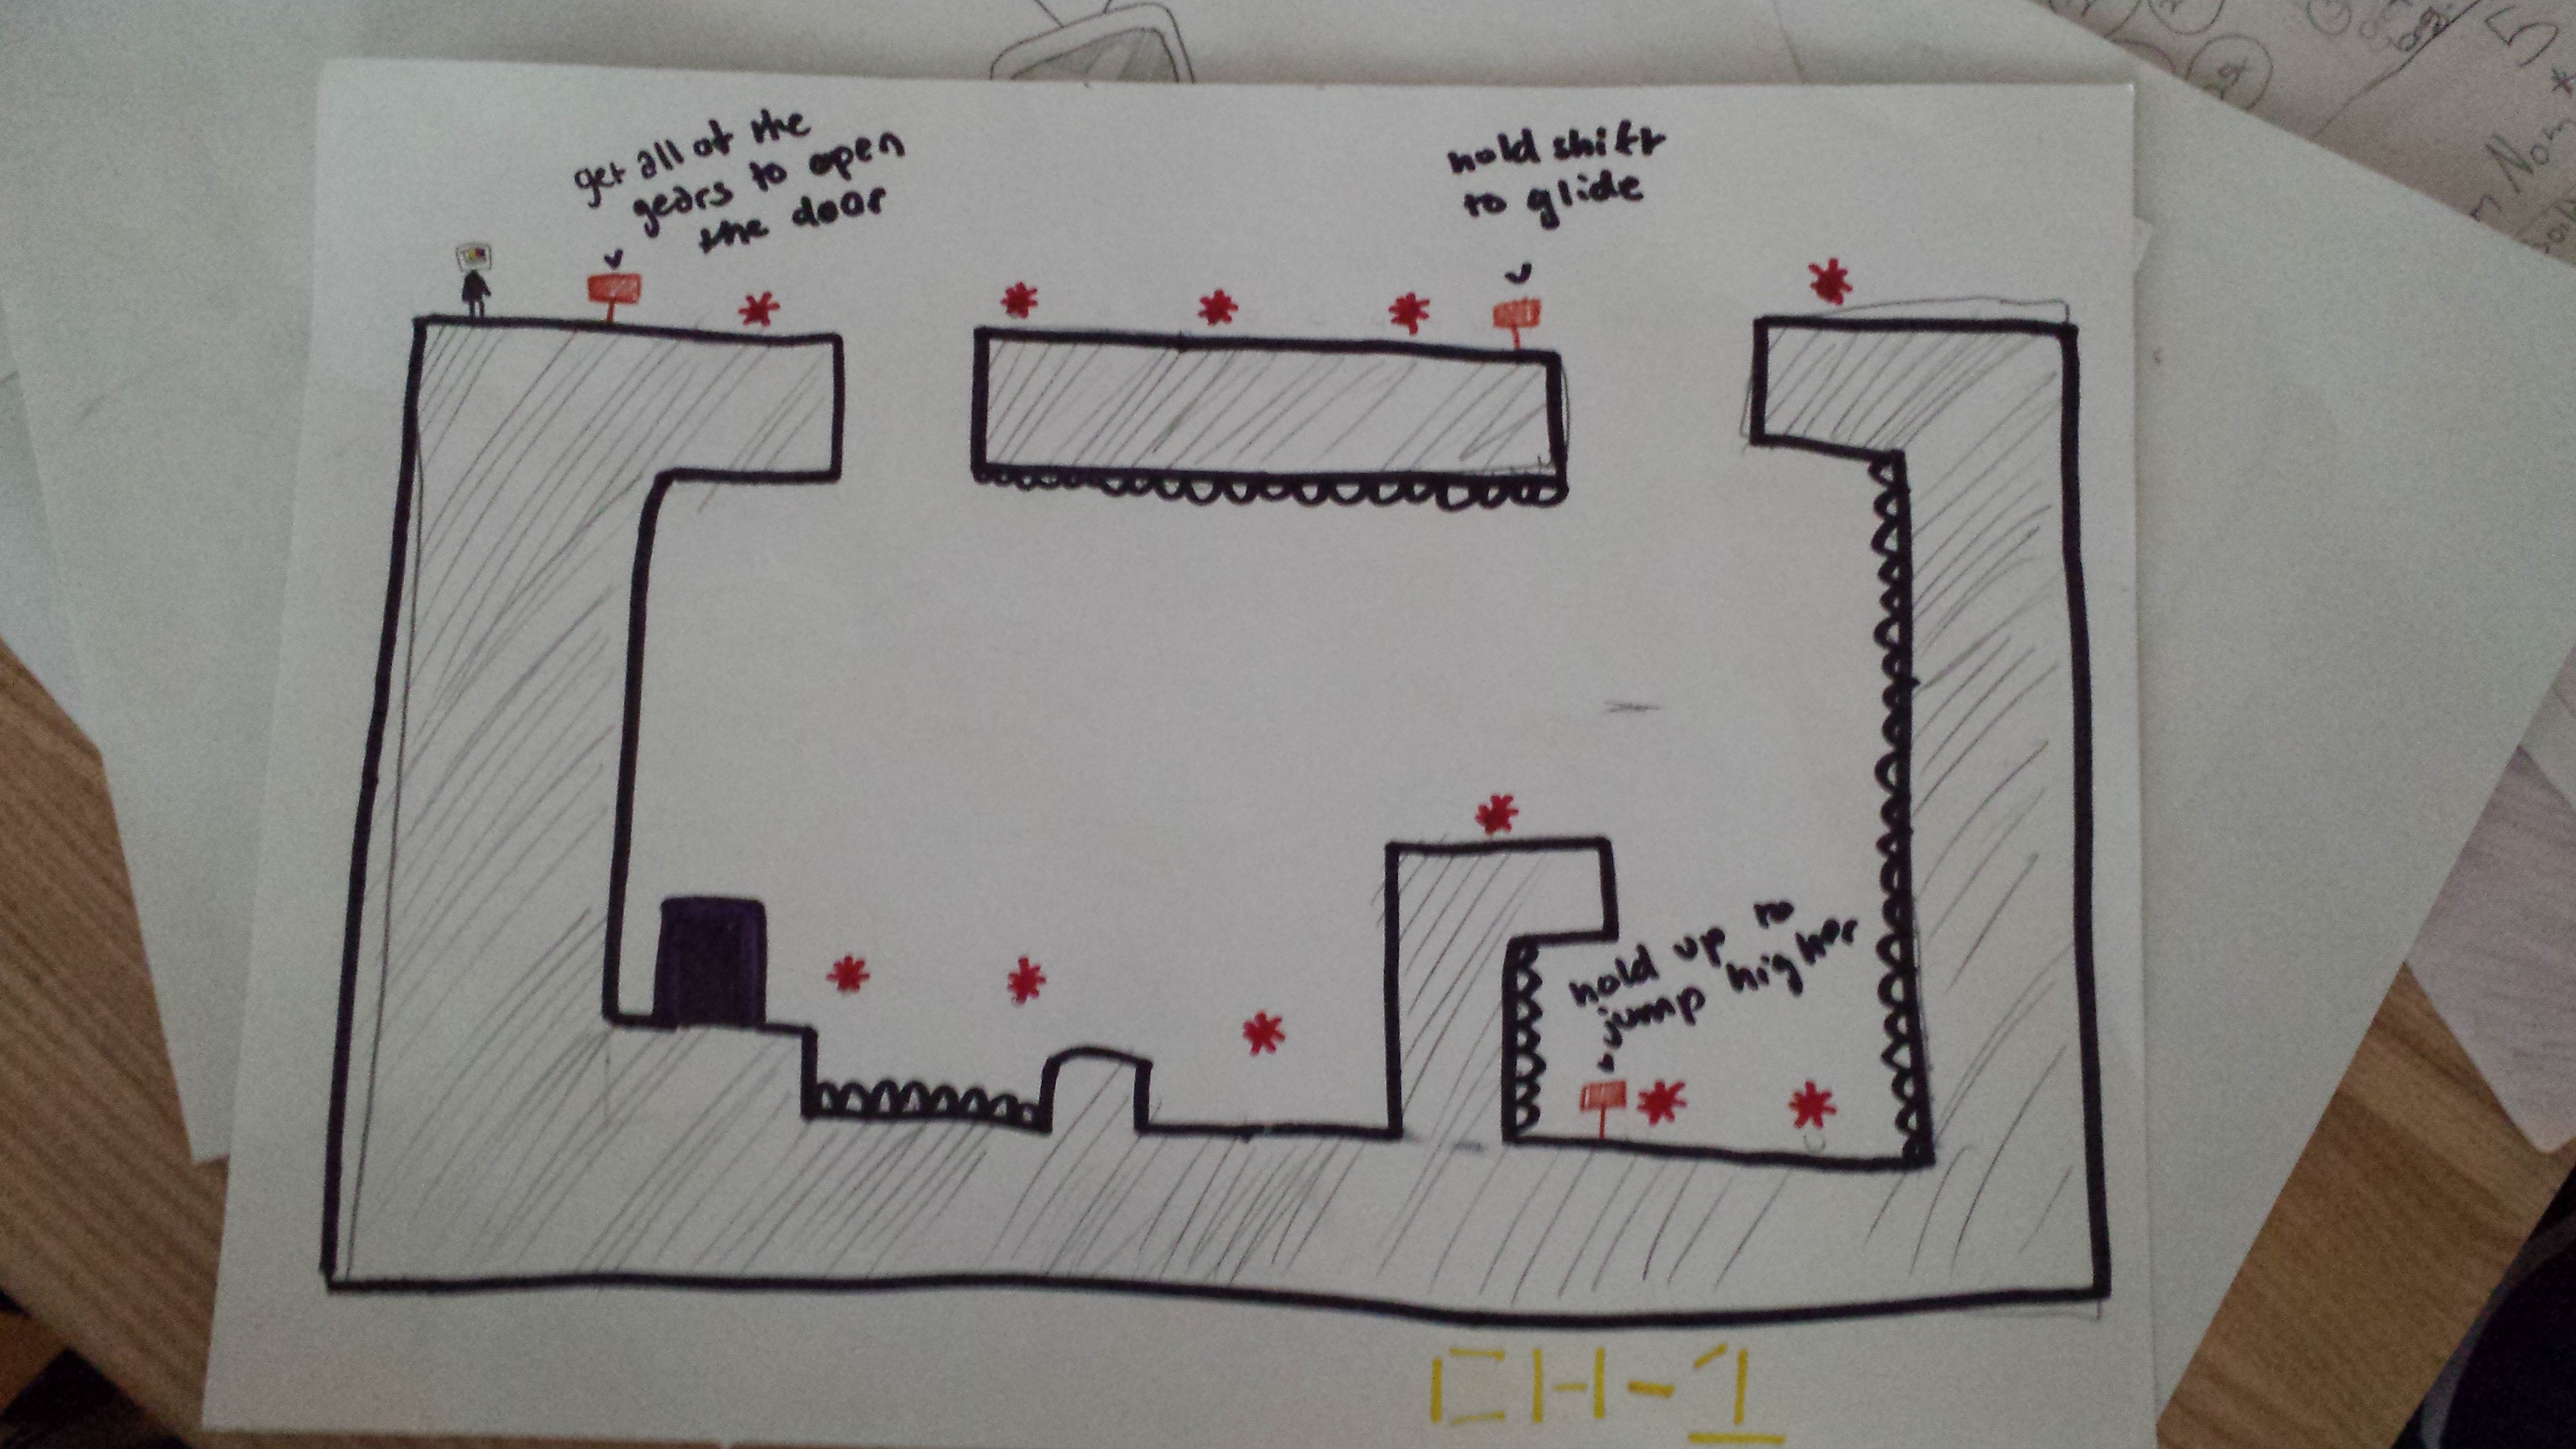 get all of the
gears to open
the door
hold shift
to glide
hold up to
jump higher
CH-1